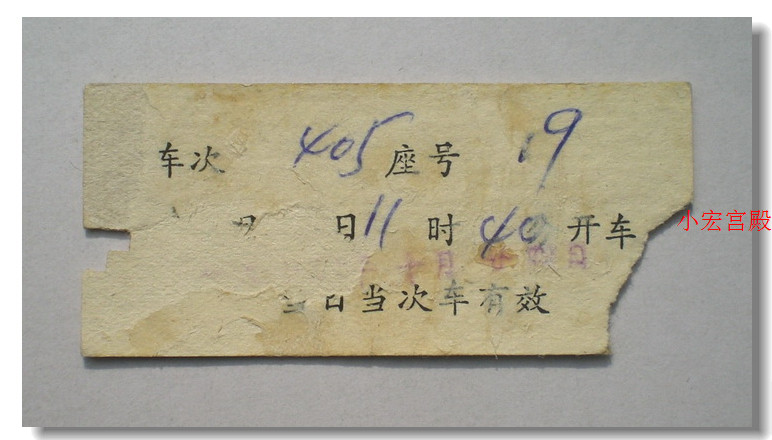 车次 405 座号 19
月 日 11 时 40 开车
十月 日
日当次车有效
小宏宫殿